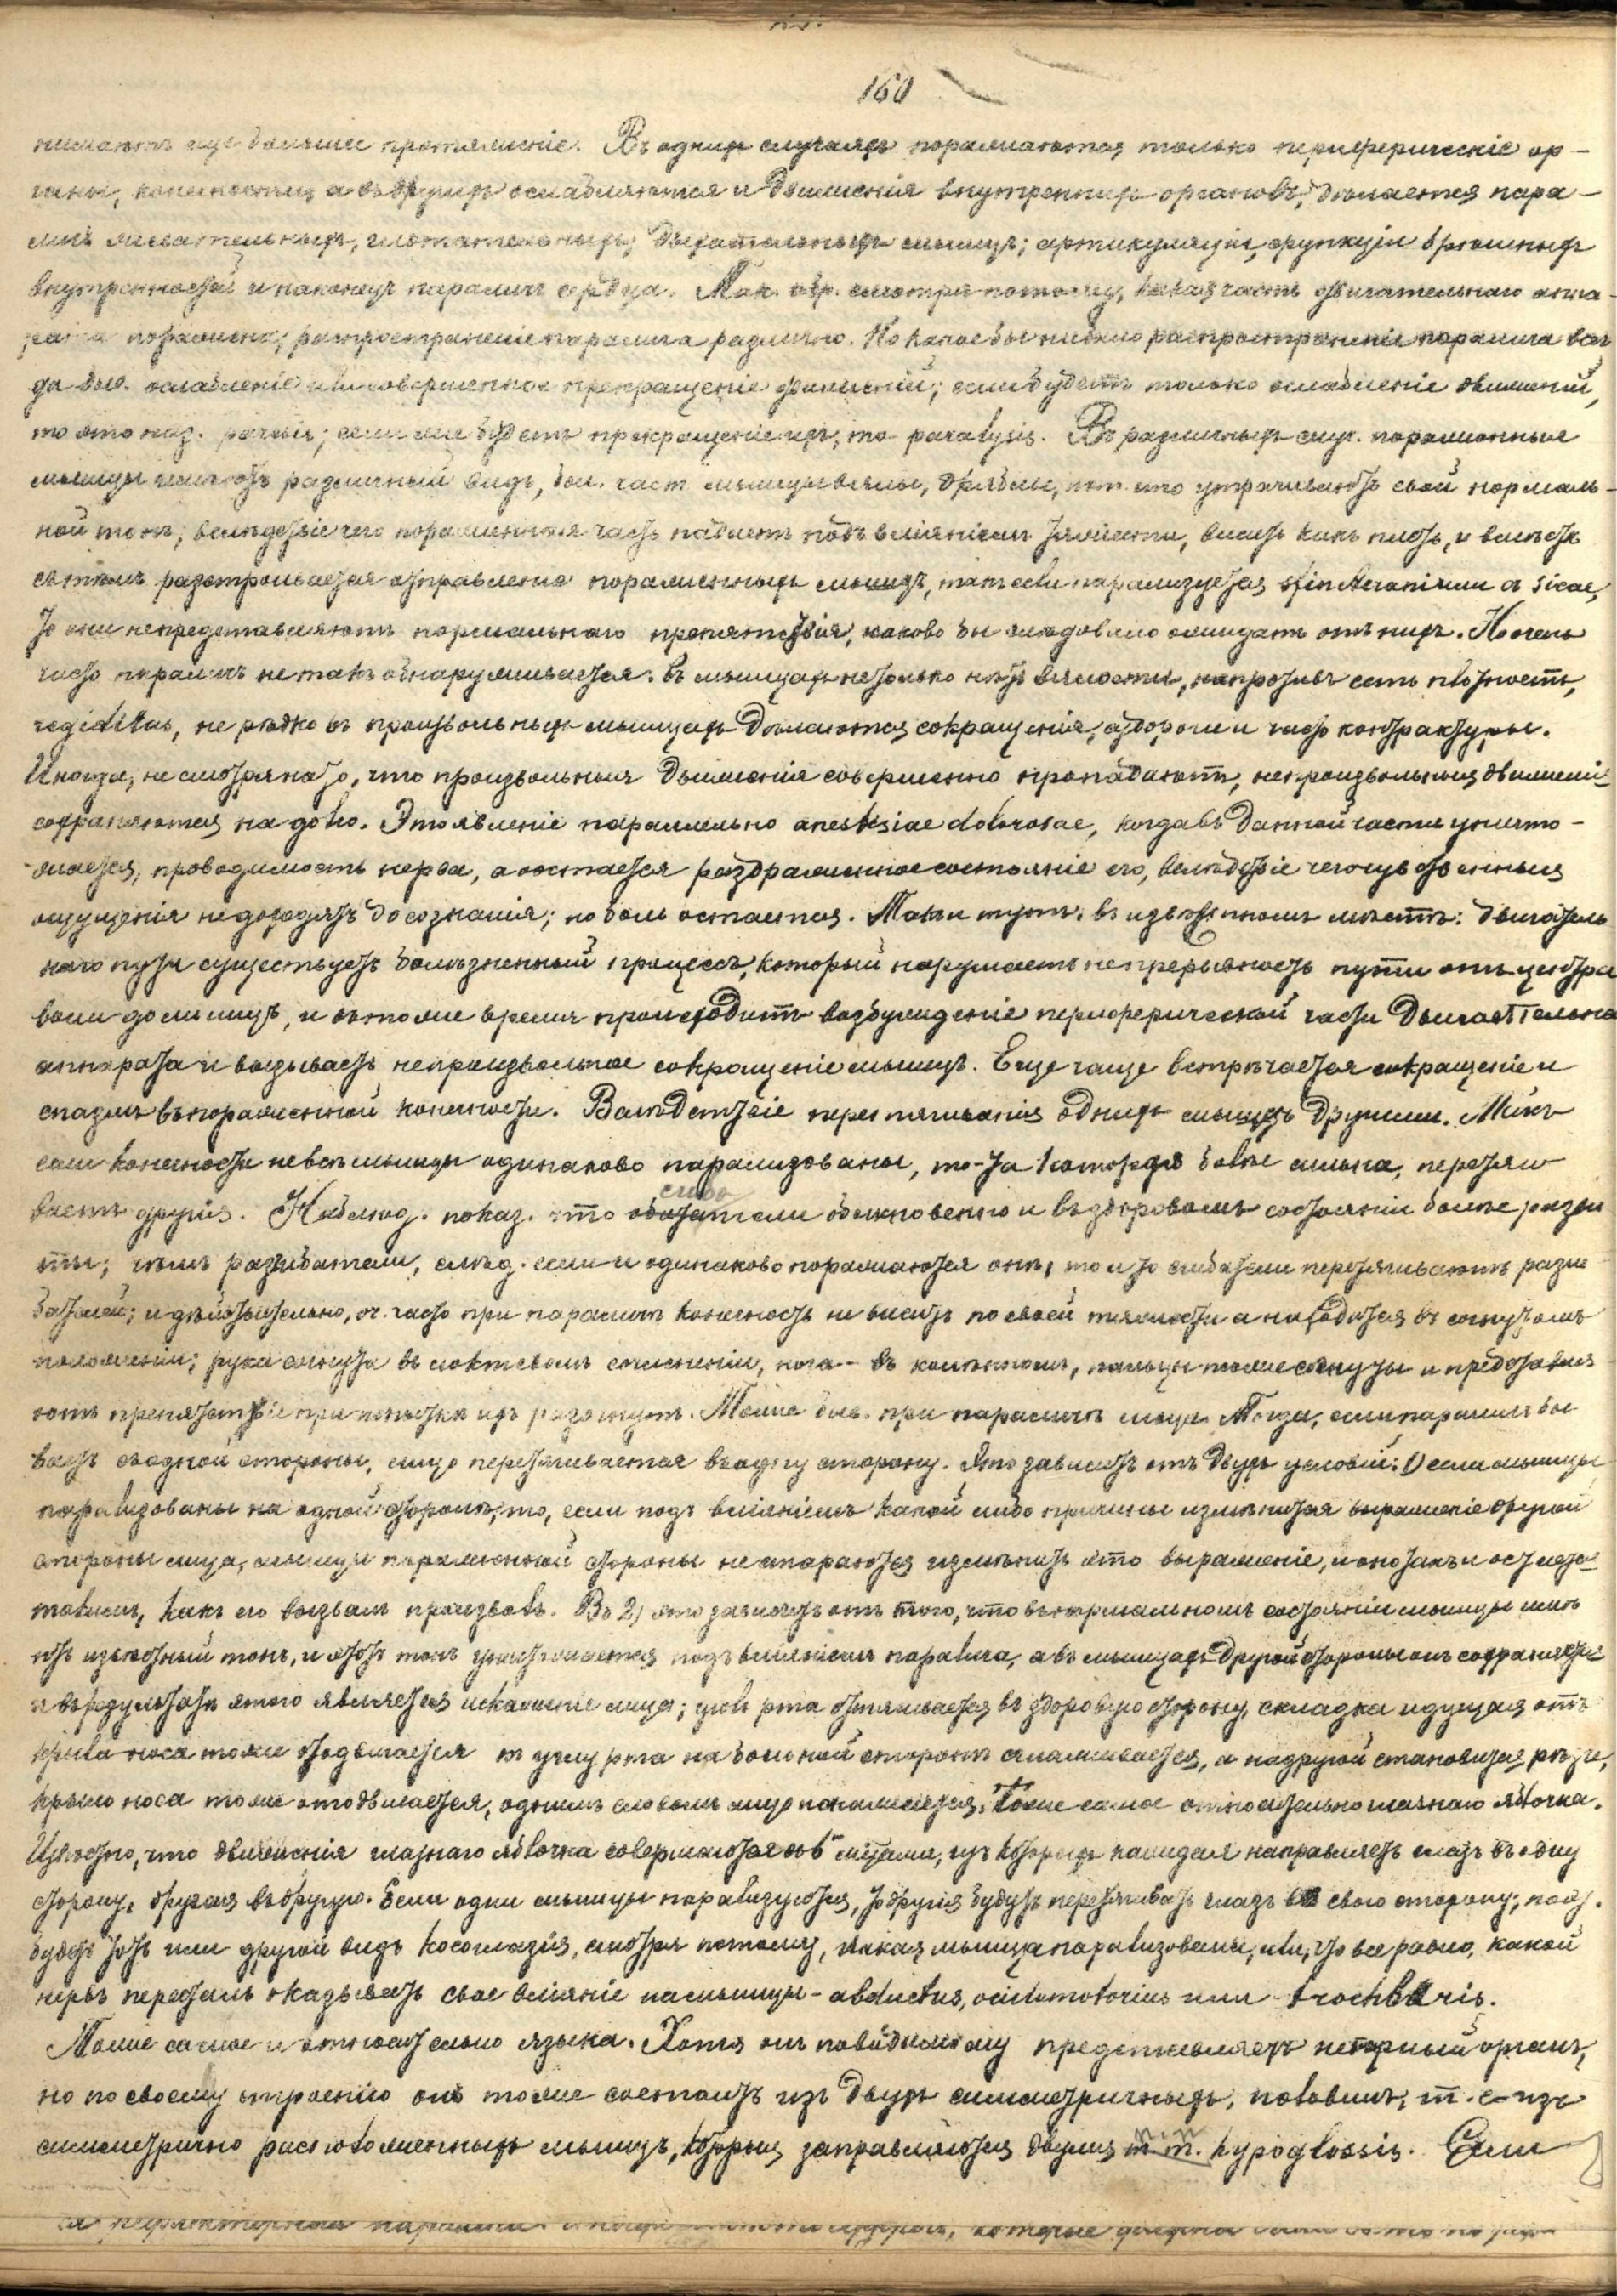 160
нимаютъ еще большее протяженіе. Въ однихъ случаяхъ поражаются только периферическіе ор-
ганы, конечности, а въ другихъ ослабляются и движенія внутреннихъ органовъ; дѣлается пара-
личъ жевательныхъ, глотательныхъ, дыхательныхъ мышцъ; артикуляціи, функціи брюшныхъ
внутренностей и наконецъ параличъ сердца. Так. обр. смотря потому, какая часть двигательнаго аппа-
рата поражена, распространеніе паралича различно. Но какое бы ни было распространеніе паралича всег
да быв. ослабленіе или совершенное прекращеніе движеній; если будетъ только ослабленіе движеній,
то это наз. paresis; если же будетъ прекращеніе ихъ, то - paralysis. Въ различныхъ случ. пораженныя
мышцы имѣютъ различный видъ, бол. част. мышцы вялы, дряблы, пот. что утрачиваютъ свой нормаль-
ной тонъ; вслѣдствіе чего пораженная часть падаетъ подъ вліяніемъ тяжести, виситъ какъ плеть, и вмѣстѣ
съ тѣмъ разстроивается отправленіе пораженныхъ мышцъ, такъ если парализуется sfincter ani или vesicae,
то они непредставляютъ нормальнаго препятствія, каково бы слѣдовало ожидать отъ нихъ. Но очень
часто параличъ не такъ обнаруживается: въ мышцахъ не только нѣтъ вялости, напротивъ есть плотность,
regiditas, не рѣдко въ произвольныхъ мышцахъ дѣлаются сокращенія, а порою и часто контрактуры.
Иногда, не смотря на то, что произвольныя движенія совершенно пропадаютъ, непроизвольныя движенія
сохраняются на долго. Это явленіе параллельно anestesiae dolorosae, когда въ данной части уничто-
жается, проводимость нерва, а остается раздраженное состояніе его, вслѣдствіе чего чувственныя
ощущенія недоходятъ до сознанія; но боль остается. Такъ и тутъ: въ извѣстномъ мѣстѣ двигатель
наго пути существуетъ болѣзненный процессъ, который нарушаетъ непрерывность пути отъ центра
воли до мышцъ, и въ тоже время происходитъ возбужденіе периферической части двигательна
аппарата и вызываетъ непроизвольное сокращеніе мышцъ. Еще чаще встрѣчается сокращеніе и
спазмъ въ пораженной конечности. Вслѣдствіе перетягиванія однихъ мышцъ другими. Такъ
если конечности не всѣ мышцы одинаково парализованы, то - та которая болѣе сильна, перетяги
ваетъ другія. Наблюд. показ. что сгибатели обыкновенно и въ здоровомъ состояніи болѣе разви
ты, чѣмъ разгибатели, слѣд. если и одинаково поражаются онѣ, то и то сгибатели перетягиваютъ разги
бателей; и дѣйствительно, оч. часто при параличѣ конечность не виситъ по своей тяжести а находится въ согнутомъ
положеніи; рука согнута въ локтевомъ сочлененіи, нога - въ колѣнномъ, пальцы тоже согнуты и представля
ютъ препятствіе при попыткѣ ихъ разогнуть. Тоже быв. при параличѣ лица. Тогда, если параличъ бы
ваетъ съ одной стороны, лицо перетягивается въ одну сторону. Это зависитъ отъ двухъ условій: 1) если мышцы
парализованы на одной сторонѣ, то, если подъ вліяніемъ какой либо причины измѣнится выраженіе другой
стороны лица, мышцы пораженной стороны не стараются измѣнить это выраженіе, и оно такъ и остается
такимъ, какъ его вызвалъ произволъ. Въ 2) это зависитъ отъ того, что въ нормальномъ состояніи мышцы имѣ
ютъ извѣстный тонъ, и этотъ тонъ уничтожается подъ вліяніемъ паралича, а въ мышцахъ другой стороны онъ сохраняется
и въ результатѣ этого является искаженіе лица; уголъ рта оттягивается въ здоровую сторону, складка идущая отъ
крыла носа тоже отодвигается къ углу рта на больной сторонѣ сглаживается, а на другой становится рѣзче,
крыло носа тоже отодвигается, однимъ словомъ лицо искажается. Тоже самое относительно глазнаго яблочка.
Извѣстно, что движенія глазнаго яблочка совершаются 6 мышцами, изъ которыхъ каждая направляетъ глазъ въ одну
сторону, другая въ другую. Если одни мышцы парализуются, то другія будутъ перетягивать глазъ въ свою сторону; пол.
будетъ тотъ или другой видъ косоглазія, смотря потому, какая мышца парализована, или, что все равно, какой
нервъ пересталъ оказывать свое вліяніе на мышцы - abductus, oculomotorius или trochlearis.
Тоже самое и относительно языка. Хотя онъ повидимому представляетъ непарный органъ,
но по своему строенію онъ тоже состоитъ изъ двухъ симметричныхъ, половинъ, т. е. изъ
симметрично расположенныхъ мышцъ, которыя заправляются двумя n. n. hypoglossis. Если